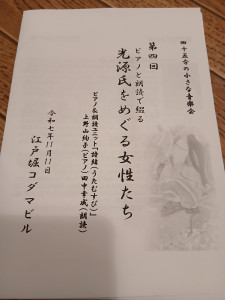 四十五分の小さな音楽会
第四回
ピアノと朗読で綴る
光源氏をめぐる女性たち
ピアノ&朗読ユニット「詩結(うたむすび)」
上野山絢子(ピアノ)田中幸成(朗読)
令和七年11月11日
江戸堀コダマビル